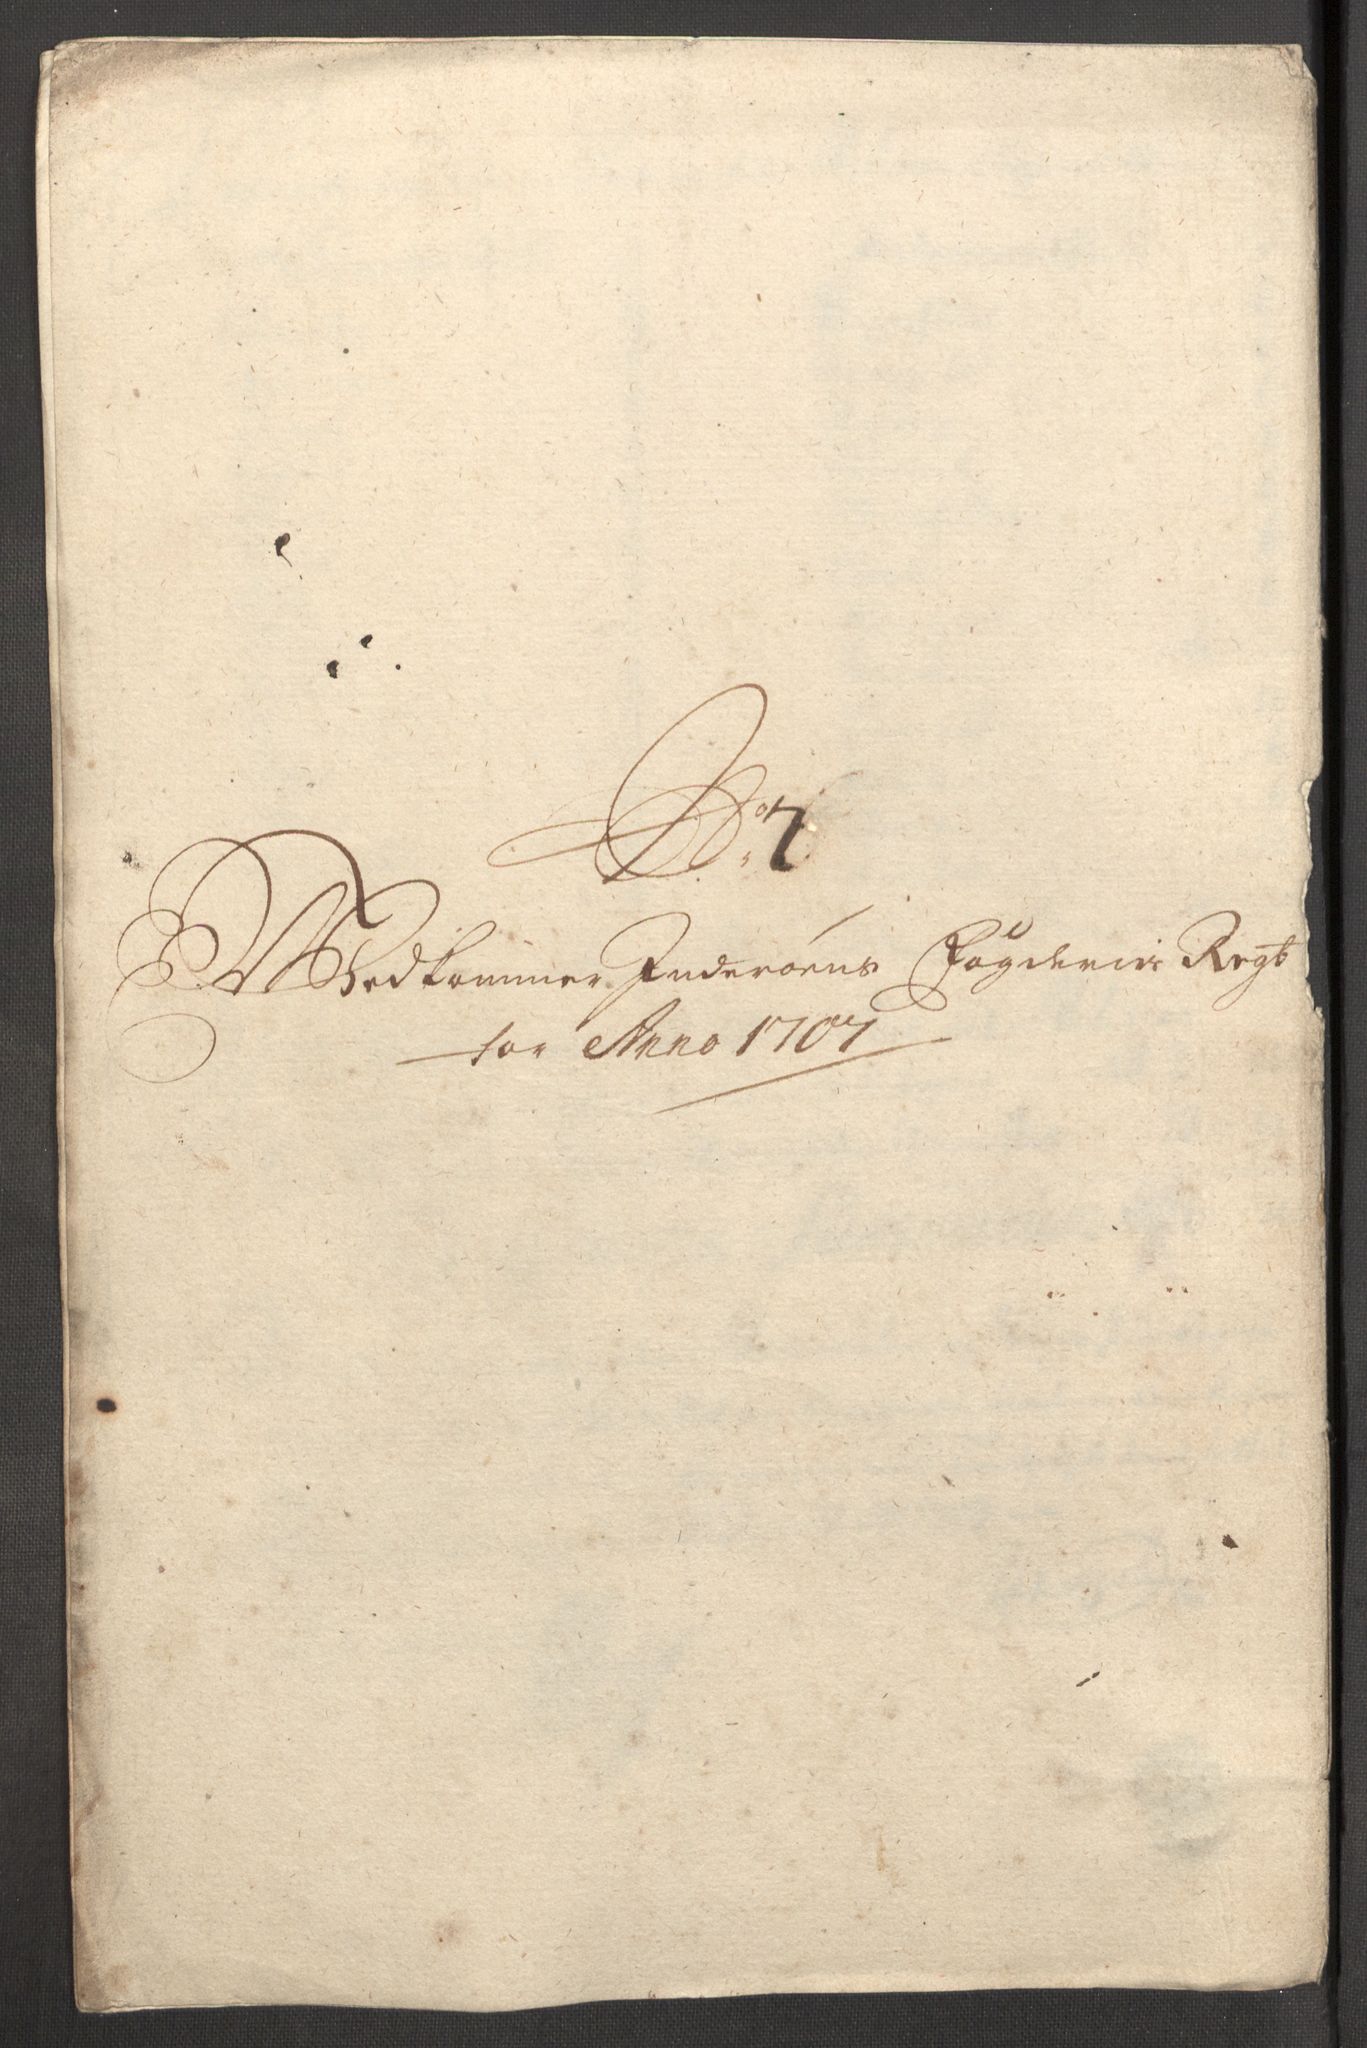 No. 7.
Vedkommer Inderøens Fogderies Regb
for Anno 1707